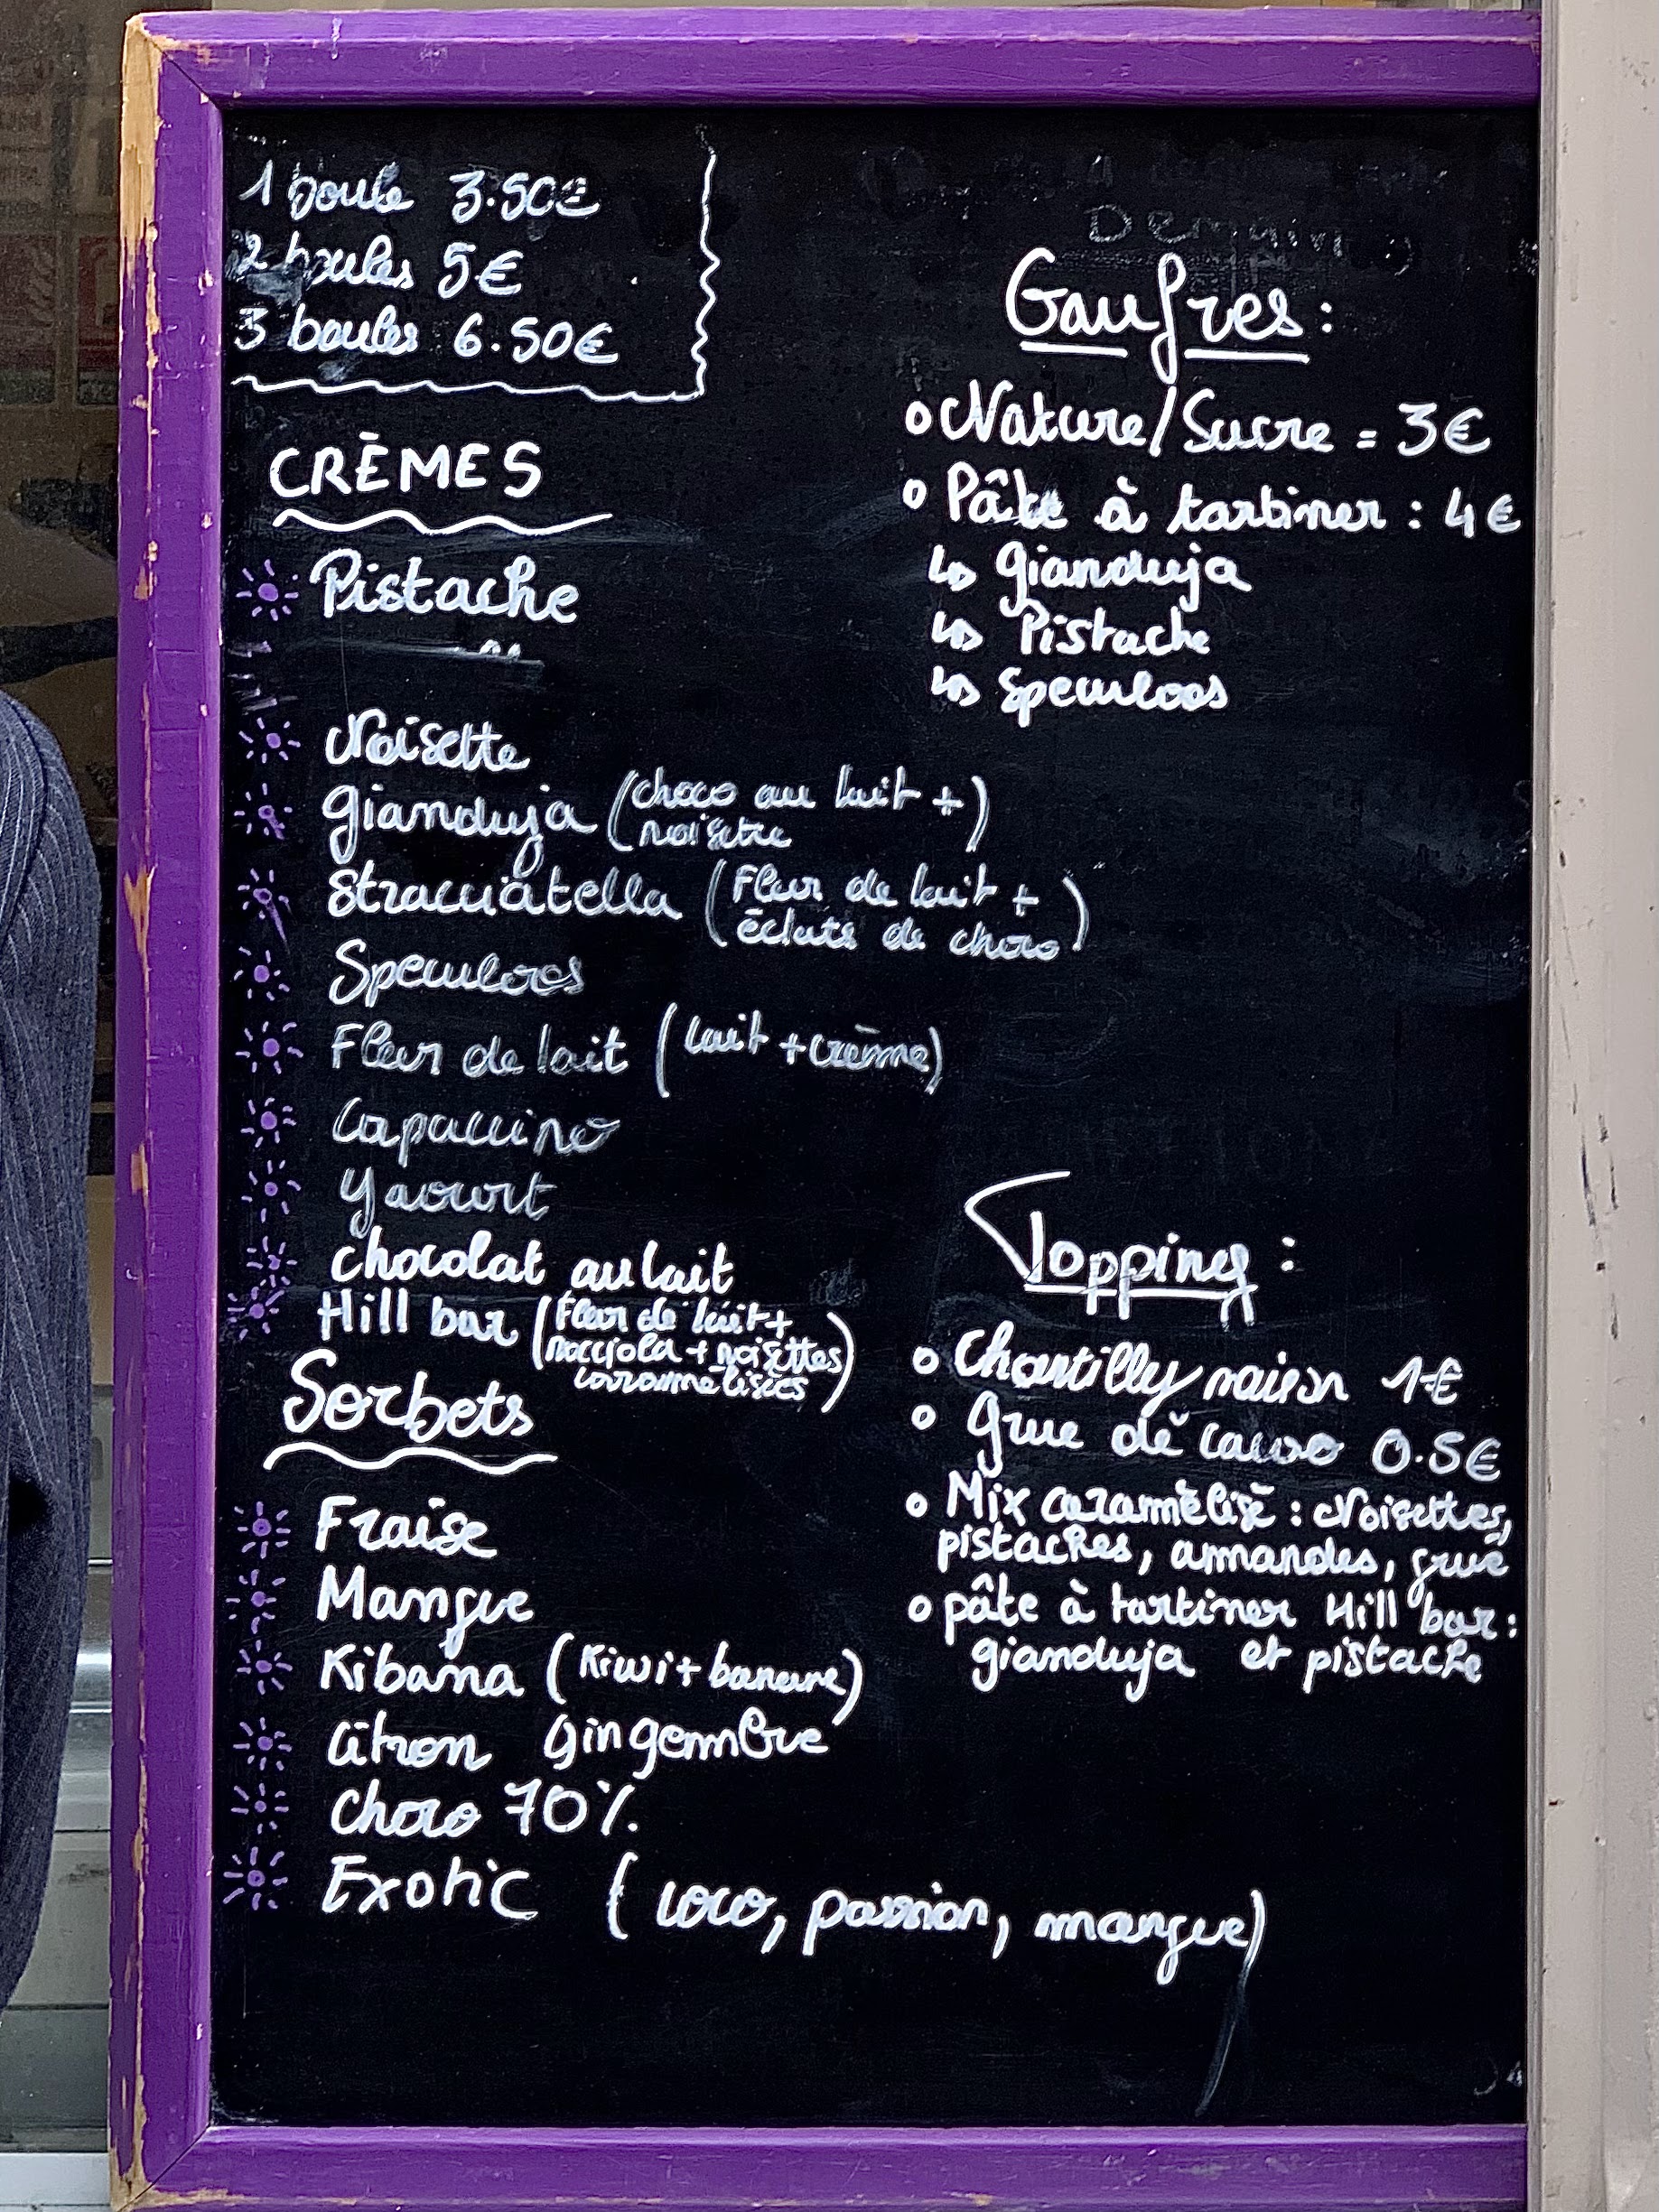 1 boule 3.50€
2 boules 5€
3 boules 6.50€
CRÈMES
Pistache
Noisette
gianduja (choco au lait +
noisette)
Stracciatella (Fleur de lait +
éclats de choco)
Speculoos
Fleur de lait (lait + crème)
Capuccino
Yaourt
chocolat au lait
Hill bar (Fleur de lait +
nocciola + noisettes
caramélisées)
Sorbets
Fraise
Mangue
Kibana (Kiwi + banane)
Citron Gingembre
Choco 70%
Exotic (coco, passion, mangue)
Demain
Gaufres :
Nature/Sucre = 3€
Pâte à tartiner : 4€
↳ gianduja
↳ Pistache
↳ Speculoos
Topping :
Chantilly maison 1€
Grue de cacao 0.5€
Mix caramélisé : Noisettes,
pistaches, amandes, grué
pâte à tartiner Hill bar :
gianduja et pistache